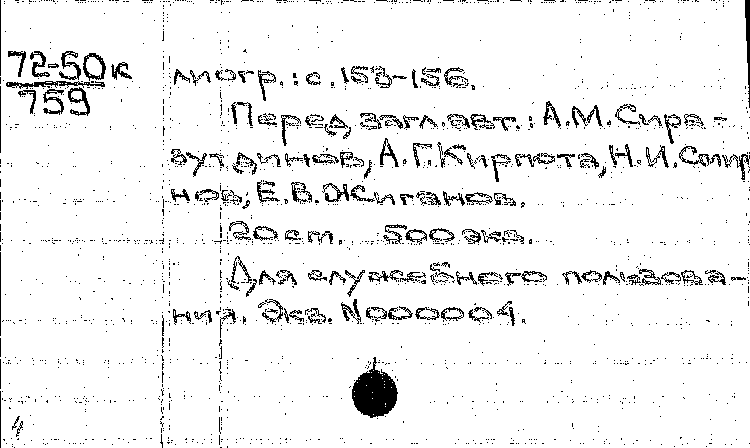 72-50к
759
лиогр.: с. 153-156.
Перед загл. авт.: А.М. Сира-
зутдинов, А.Г. Кирпота, Н.И. Смир
нов, Е.В. Жиганов.
20 см. 500 экз.
Для служебного пользова-
ния. Экз. N000004.
4